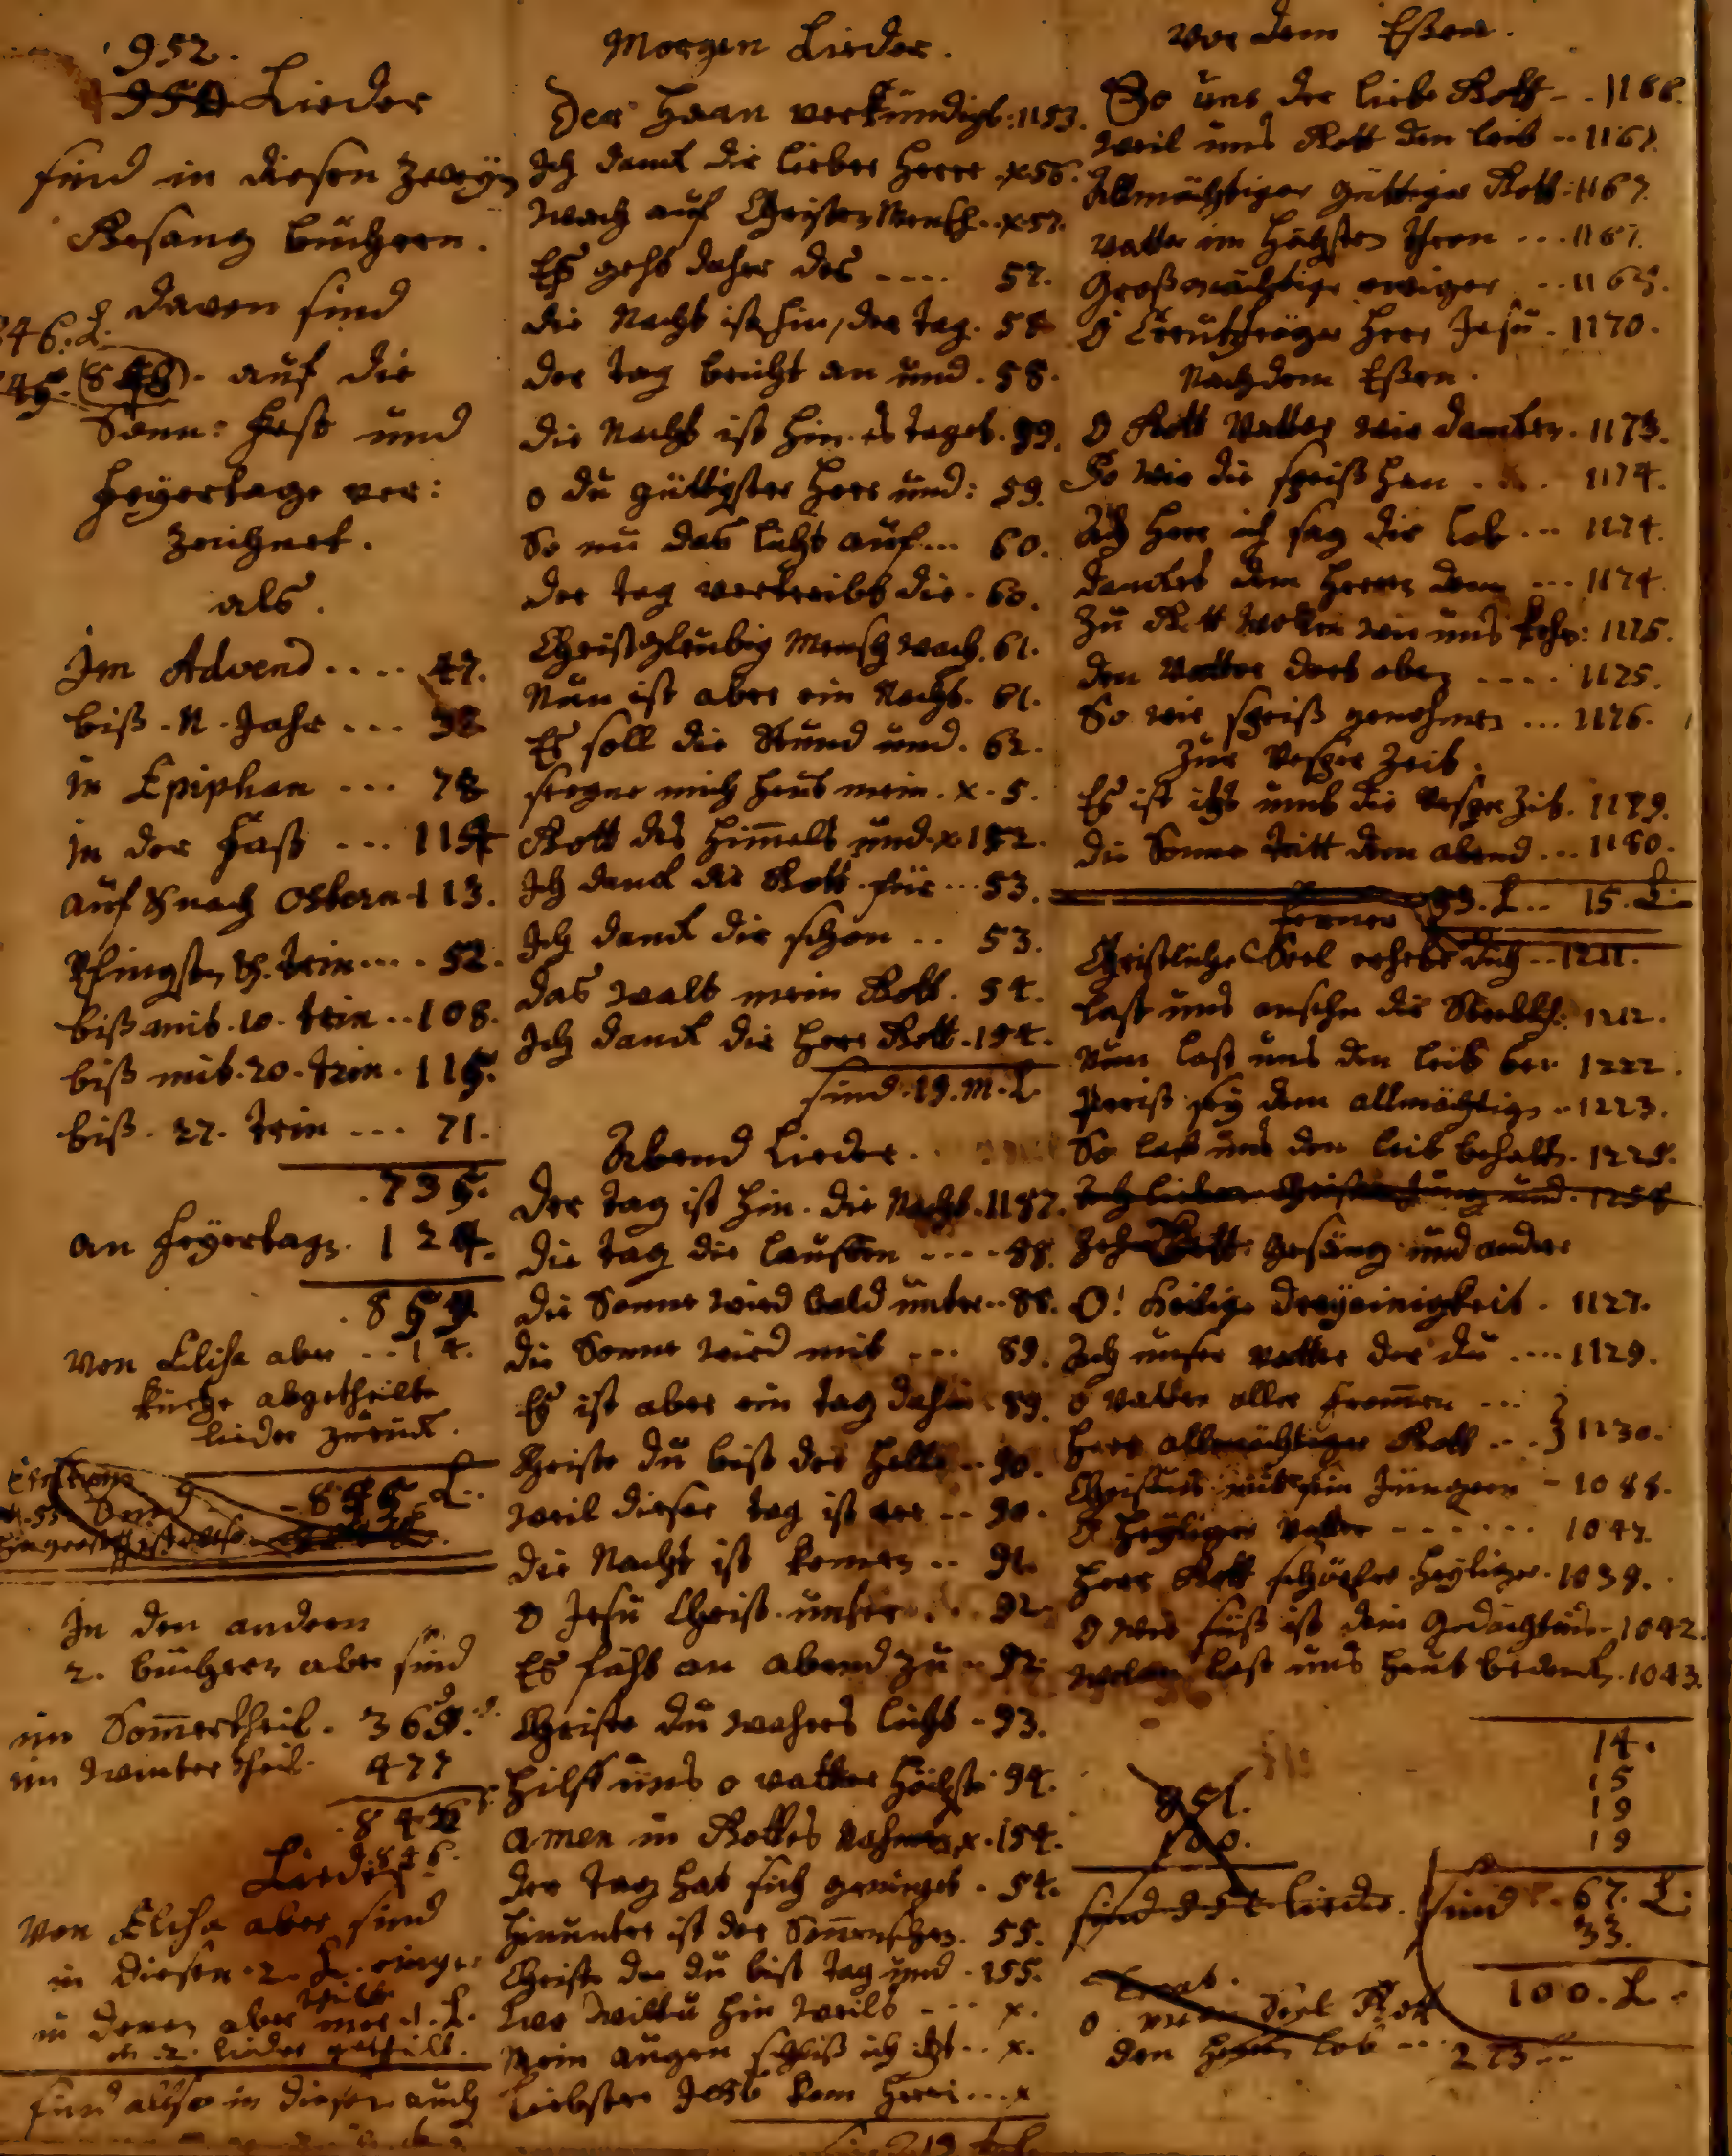 952.
950 Lieder
sind in diesen zweyn
Gesang büchern.
daven sind
846. L.
auf die
Sonn: Fest und
Feyertage ver:
zeichnet.
als.
Im Advend .... 47.
biß. N. Jahr ...
in Epiphan ... 78
in der Fast ... 114
auf & nach Ostern 113.
Pfingsten & trin .... 52.
biß mit. 10. trin .. 108.
biß mit. 20. trin . 115.
biß. 27. trin ... 71.
735.
an Feyertagn. 124.
859.
von Elisa aber .. 14.
kürtze abgetheilte
lieder zurück.
845 L..
In den andern
2. büchern aber sind
im Sommertheil. 369.
im winter theil. 477
846.
Lieder
von Elisa aber sind
in diesen 2. L. einge
in denen aber
2. lieder getheilt.
sind allso in diesen auch
Morgen Lieder.
Der Haan verkündigt: 1153.
Ich danck dir lieber Herre . x56.
Wach auf Christen Mensch .. x57.
Es geht daher des .... 57.
die Nacht ist hin, der Tag. 58
der Tag bricht an und. 58.
die Nacht ist hin. es taget. 59.
o du güttigster Herr und: 59.
So nu das licht auf ... 60.
der Tag vertreibt die . 60.
Christgleubig Mensch wach. 61.
Nun ist aber ein Nacht. 61.
Es soll die Stund und. 62.
segne mich heut mein. x. 5.
Gott des Himmels und x 152.
Ich danck dir Gott für ... 53.
Ich danck dir schon .. 53.
das walt mein Gott. 54.
Ich danck dir Herr Gott. 194.
sind. 19. M. L.
Abend Lieder.
der tag ist hin. die Nacht. 1187.
die tag die lauffen .... 88.
die Sonne wird bald unter .. 88.
die Sonne wird mit ... 89.
Es ist aber ein tag dahin 89.
Christe du bist der helle .. 90.
weil dieser tag ist ver .. 90.
die Nacht ist komen .. 91.
O Jesu Christ unser ... 92.
Es facht an abend zu .. 92.
Christe du wahres licht - 93.
Hilff uns o vatter höchster 94.
Amen in Gottes Nahmen x. 154.
der Tag hat sich geneiget . 54.
Hinunter ist der Sonnenschein. 55.
Christe der du bist tag und . 155.
Wo wiltu hin weils ... x.
Mein augen schliß ich itzt .. x.
Liebster Jesu kom herei ... x
Vor dem Eßen.
So uns der liebe Gott - . 1166.
weil uns Gott den leib .. 1167.
Allmächtiger güttiger Gott: 1167.
vatter im höchsten thron ... 1167.
Großmächtiger ewiger .. 1169.
O Creutzträger Herr Jesu . 1170.
Nach dem Eßen.
O Gott Vatter wir dancken . 1173.
So wir die speiß han . . 1174.
Ach Herr ich sag dir lob ... 1174.
dancket dem Herren denn ... 1174.
Zu Gott wollen wir uns kehr: 1175.
den Vatter dort oben .... 1175.
So wir speiß genohmen ... 1176.
Zur Vesper Zeit.
Es ist itzt umb die Vesper Zit. 1179.
die Sonne tritt dem abend ... 1180.
ferner 33. L... 15. L.
Christliche Seel erhebe dich .. 1211.
last uns ansehn die Sterbl: 1212.
Nun last uns den leib ber 1222.
Preiß sey dem allmächtign .. 1223.
So last uns den leib behaltn. 1225.
gesäng und andere
O! Heilige dreyeinigkeit . 1127.
Ach unser vatter der du .... 1129.
o vatter aller frommen ...
Herr allmächtiger Gott ... } 1130.
Christus mit sein Jüngern - 1088.
O Heyliger vatter ...... 1047.
Herr Gott schöpfer Heyliger. 1039.
O wie süß ist dein Gedächtnis - 1042.
wolan last uns heut bedenck. 1043.
14.
15
19
19
851.
100.
sind 951 lieder.
sind . 67. L.
33.
100. L.
den Herrn lob ... 273 ...